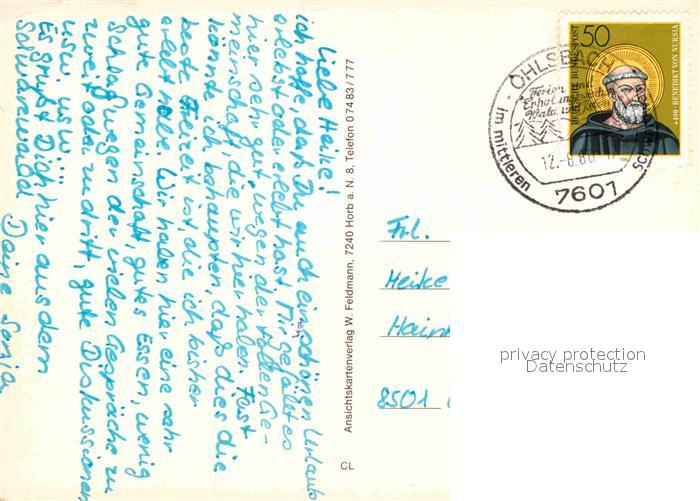 Liebe Heike!
ich hoffe daß Du auch einen schönen Urlaub
erlebst oder erlebt hast. Mir gefällt es
hier sehr gut wegen der tollen Ge-
meinschaft, die wir hier haben. Fast
könnte ich behaupten, daß dies die
beste Freizeit ist, die ich bisher
erlebt habe. Wir haben hier eine sehr
gute Gemeinschaft, gutes Essen, wenig
Schlaf wegen der vielen Gespräche zu
zweit oder zu dritt, gute Diskussionen
usw. usw.
Es grüßt Dich hier aus dem
Schwarzwald
Deine Sonja
Ansichtskartenverlag W. Feldmann, 7240 Horb a. N. 8, Telefon 0 74 83 / 7 77
CL
OHLSBACH
Ferien und
Erholung zwischen
Wald und
im mittleren
12.-8.80
7601
50
DEUTSCHE BUNDESPOST
* 480 · BENEDIKT VON NURSIA
Frl.
Heike
Hain
8501
privacy protection
Datenschutz